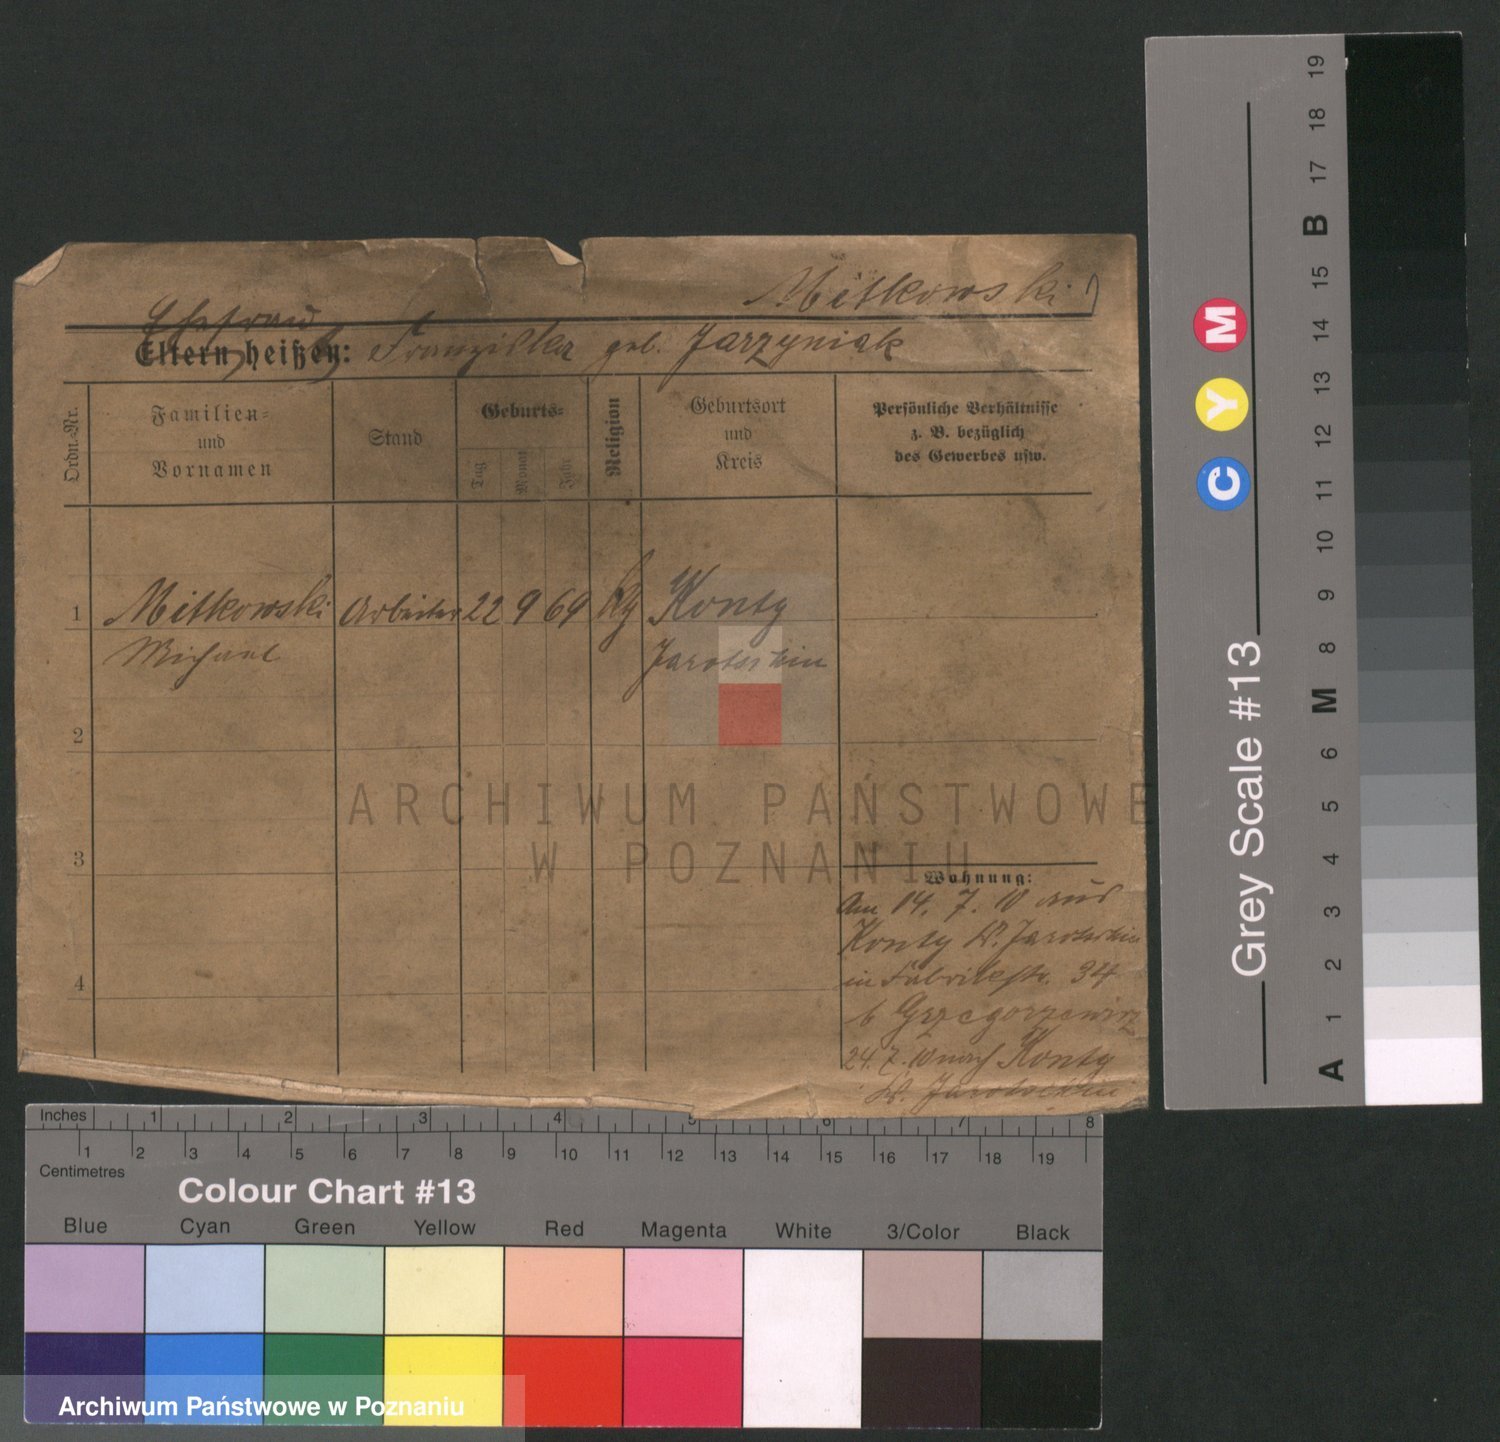 Mitkowski
Ehefrau
Eltern heißen: Franziska geb. Jarzyniak
Ordn.-Nr.
Familien-
und
Vornamen
Stand
Geburts-
Tag
Monat
Jahr
Religion
Geburtsort
und
Kreis
Persönliche Verhältnisse
z. B. bezüglich
des Gewerbes usw.
1 Mitkowski Arbeiter 22 9 69 Konty
Michael Jarotschin
2
3
4
ARCHIWUM PAŃSTWOWE
W POZNANIU
Wohnung:
Am 14. 7. 10 aus
Konty Kr. Jarotschin
in Fabrikstr. 34
b Grzegorzewicz
24. 7. 10 nach Konty
Kr. Jarotschin
Inches 1 2 3 4 5 6 7 8
1 2 3 4 5 6 7 8 9 10 11 12 13 14 15 16 17 18 19
Centimetres
Colour Chart #13
Blue Cyan Green Yellow Red Magenta White 3/Color Black
Archiwum Państwowe w Poznaniu
Grey Scale #13
C Y M
A 1 2 3 4 5 6 M 8 9 10 11 12 13 14 15 B 17 18 19